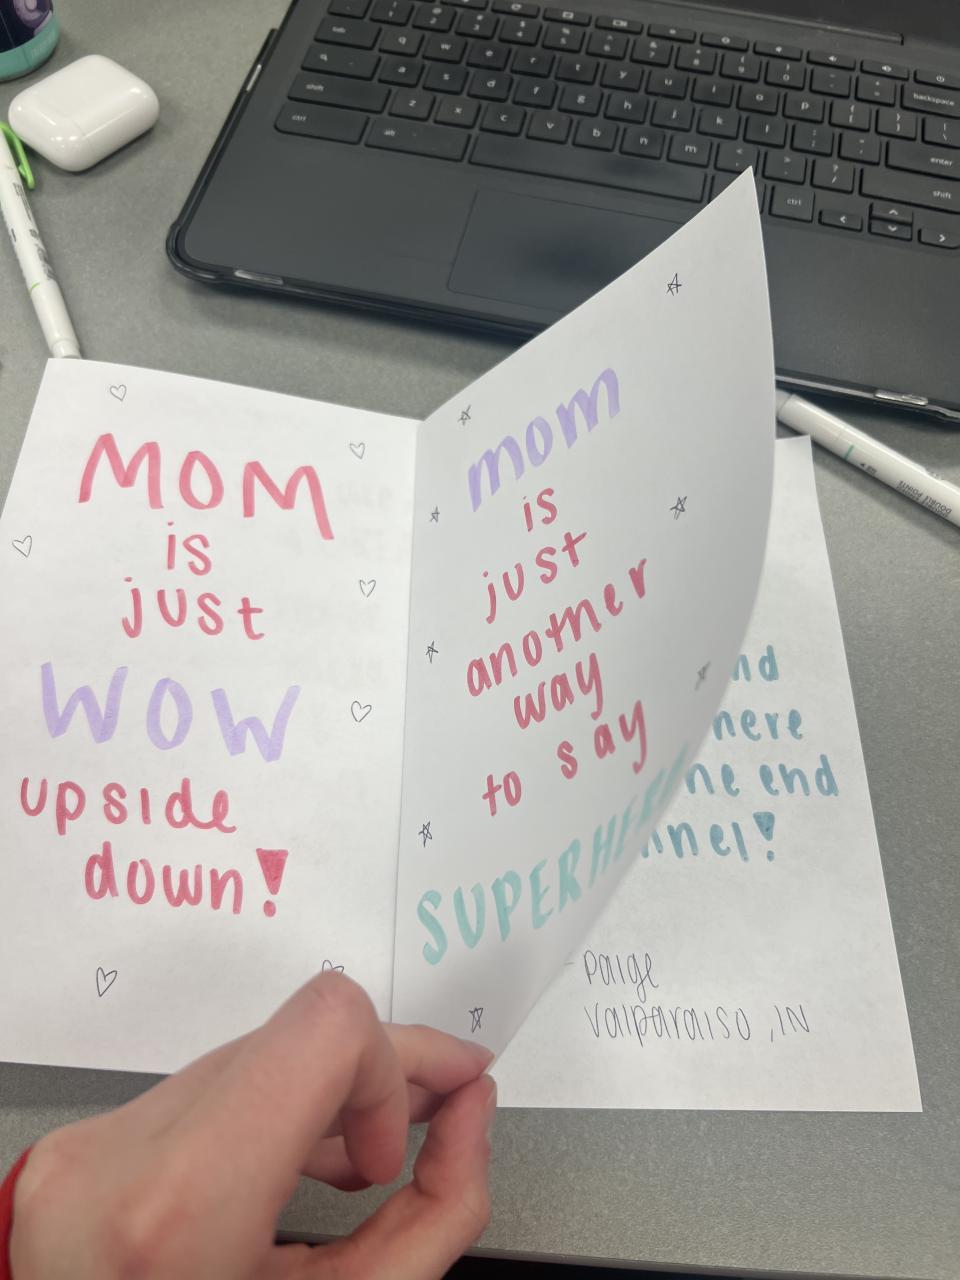 MOM
is
just
WOW
upside
down!
mom
is
just
another
way
to say
SUPERHERO
end
- Paige
Valparaiso, IN
backspace
enter
shift
shift
ctrl
alt
ctrl
tab